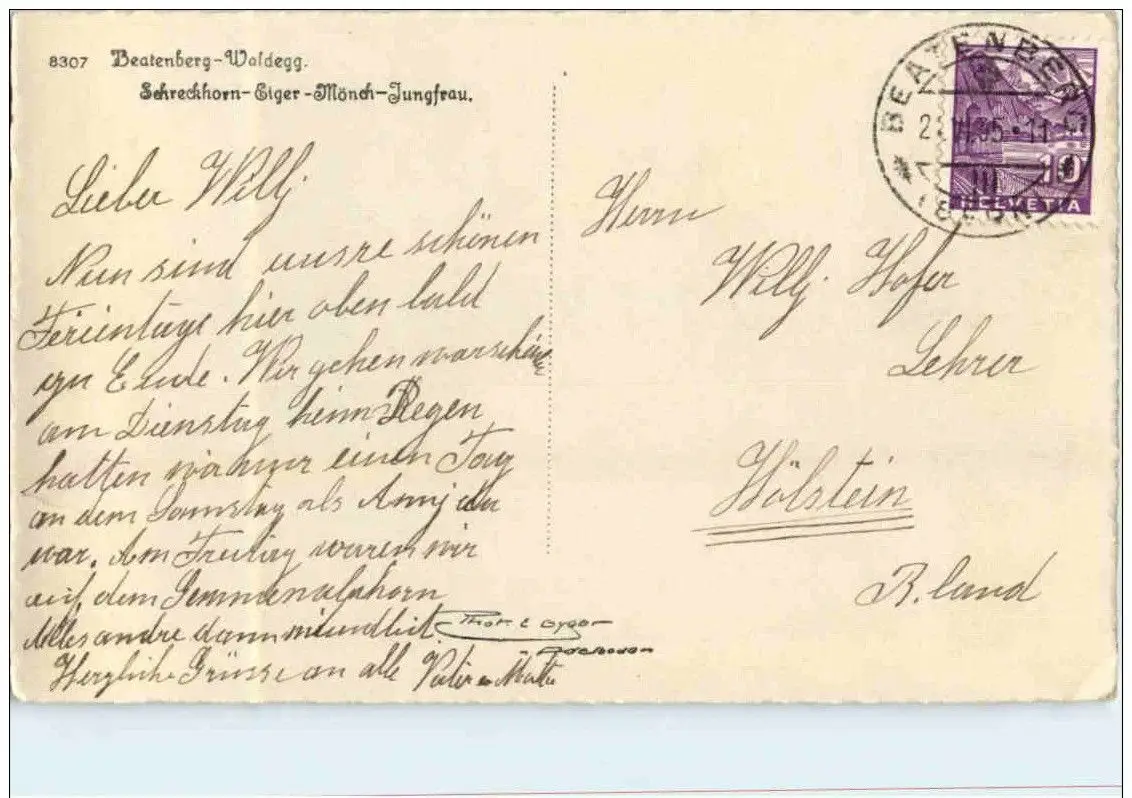 8307 Beatenberg-Waldegg.
Schreckhorn-Eiger-Mönch-Jungfrau.
Lieber Willj
Nun sind unsre schönen
Ferientage hier oben bald
zu Ende. Wir gehen warschein
am Dienstag heim Regen
hatten wir nur einen Tag
an dem Samstag als da
war. Am Freitag waren wir
auf dem Gemmenalphorn
Alles andre dann mündlich
Herzliche Grüsse an alle Vater u Mutter
Phot. E Gyger
Adelboden
BEATENBERG
VI.35-11
(BERN)
10
HELVETIA
Herrn
Willj Hofer
Lehrer
Hölstein
B.land